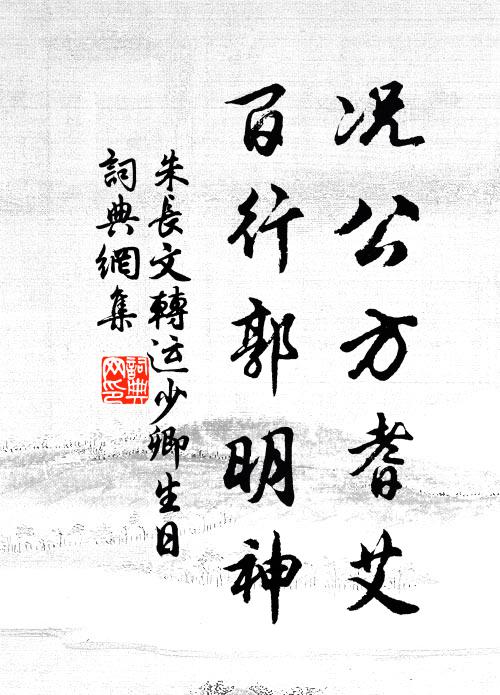 况公方耆艾
百行郭明神
朱長文轉运少卿生日
詞典網集
詞典网印